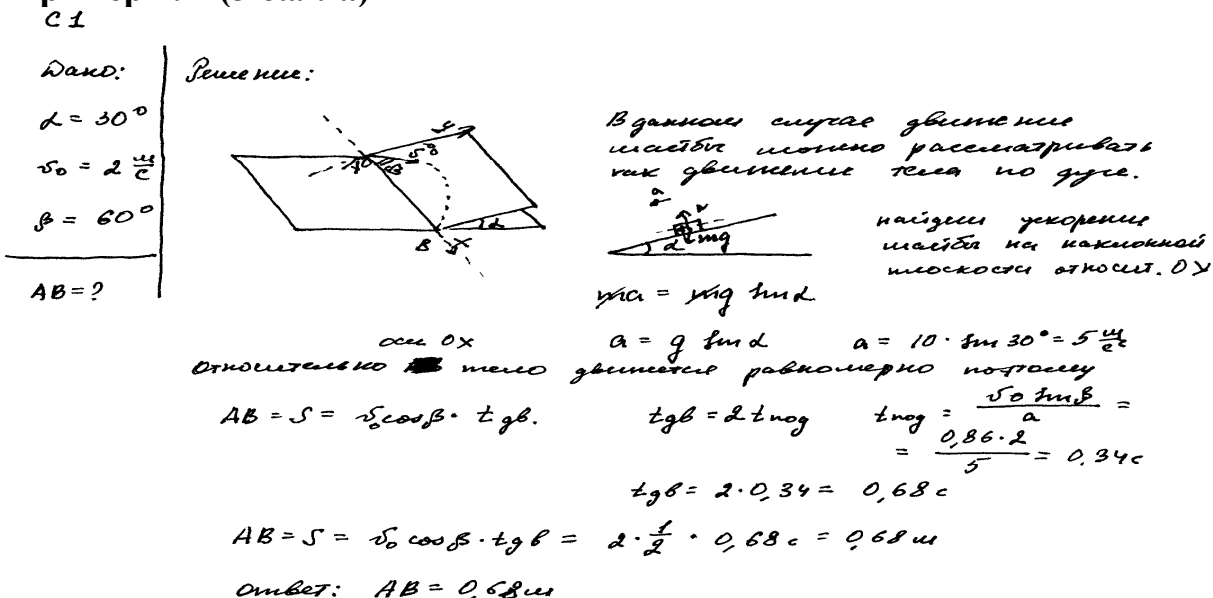 C 1
Дано:
Решение:
α = 30°
υ₀ = 2 м/с
β = 60°
AB = ?
y
υ₀
β
A
B
x
α
В данном случае движение
шайбы можно рассматривать
как движение тела по дуге.
N
α
mg
найдем ускорение
шайбы на наклонной
плоскости относит. OY
ma = mg sin α
a = g sin α a = 10 · sin 30° = 5 м/с²
оси OX
относительно тело движется равномерно поэтому
AB = S = υ₀ cos β · t дв. t дв = 2 t под t под = υ₀ sin β / a =
= 0,86 · 2 / 5 = 0,34 с
t дв = 2 · 0,34 = 0,68 с
AB = S = υ₀ cos β · t дв = 2 · 1/2 · 0,68 с = 0,68 м
Ответ: AB = 0,68 м